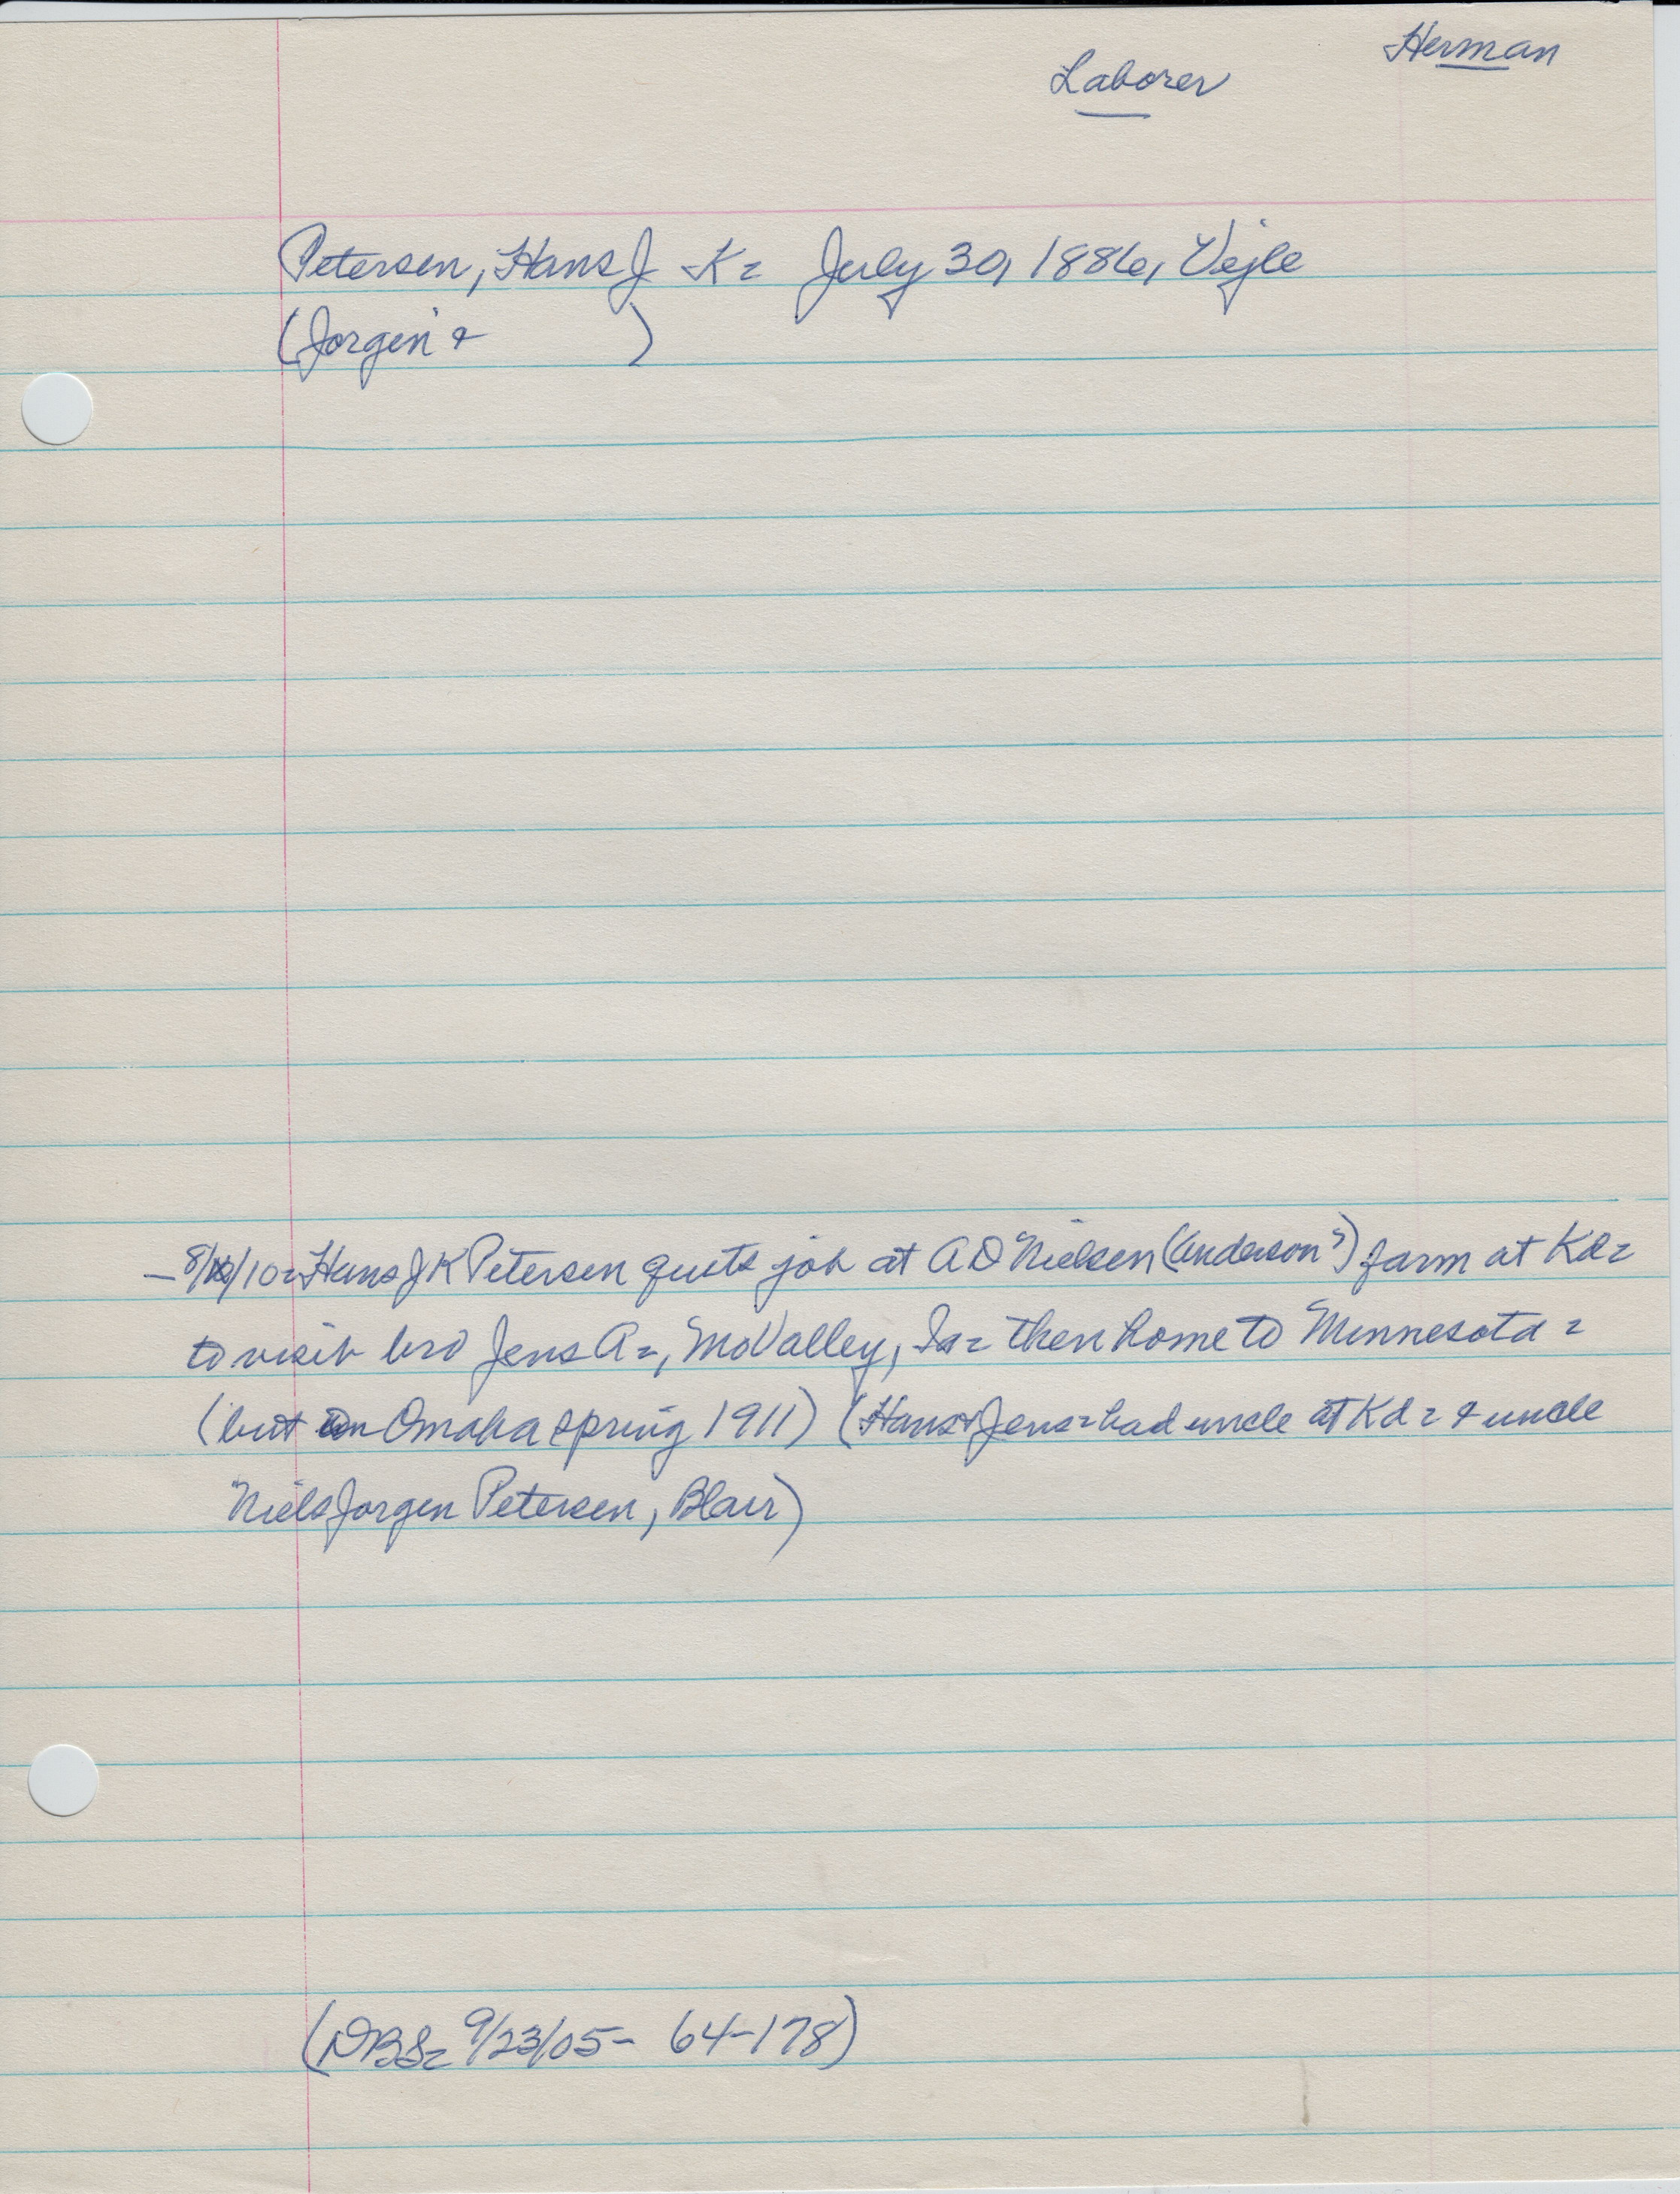 Herman
Laborer
Petersen, Hans J K= July 30, 1886, Vejle
(Jorgen & )
-8/10= Hans J K Petersen quits job at A D Nielsen (Anderson?) farm at Kd=
to visit bro Jens A=, MoValley, Ia= then home to Minnesota=
(but in Omaha spring 1911) (Hans & Jens= had uncle at Kd= & uncle
Niels Jorgen Petersen, Blair)
(DBS= 9/23/05- 64-178)